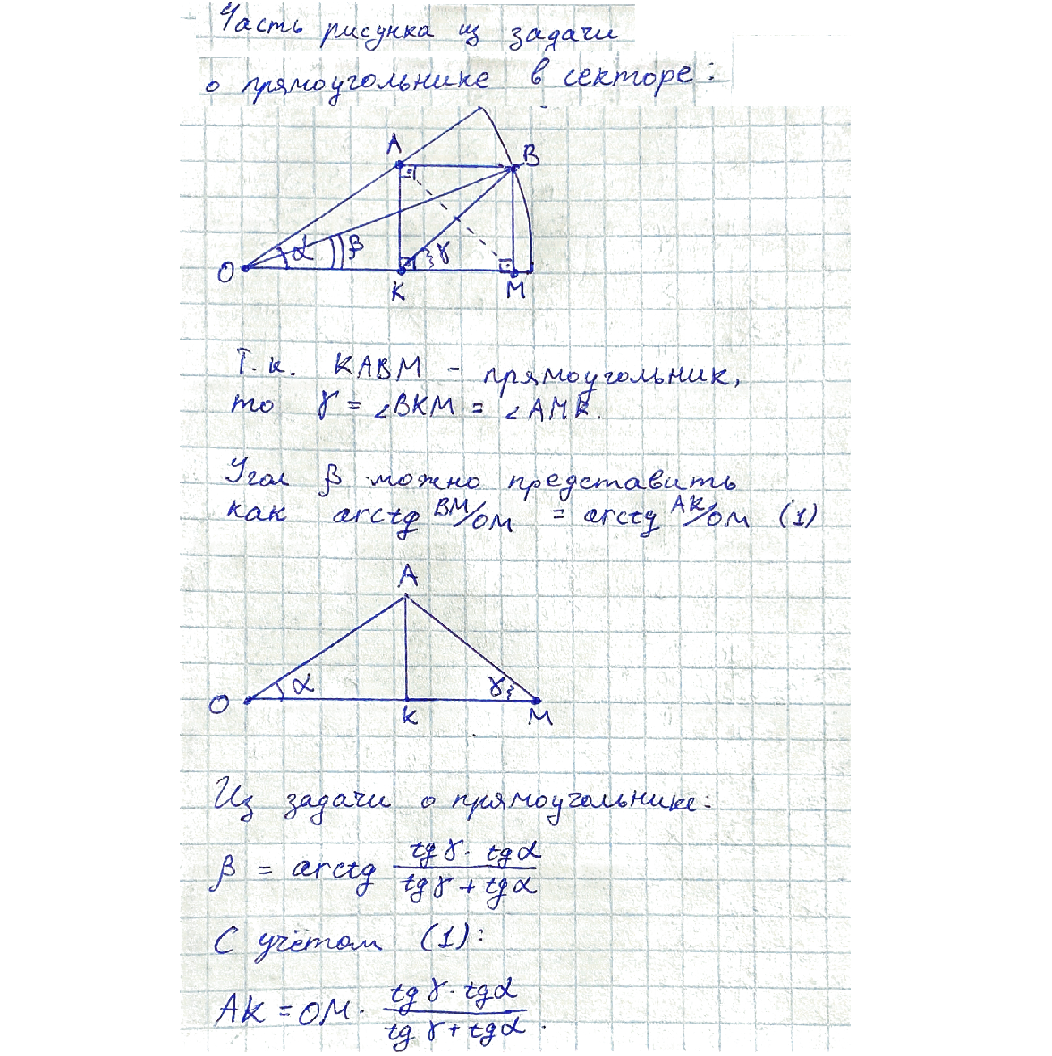 Часть рисунка из задачи
о прямоугольнике в секторе:
A
B
α
β
γ
O
K
M
Т.к. KABM - прямоугольник,
то γ = ∠BKM = ∠AMK.
Угол β можно представить
как arctg BM/OM = arctg AK/OM (1)
A
α
γ
O
K
M
Из задачи о прямоугольнике:
β = arctg (tg γ · tg α)/(tg γ + tg α)
С учётом (1):
AK = OM · (tg γ · tg α)/(tg γ + tg α).